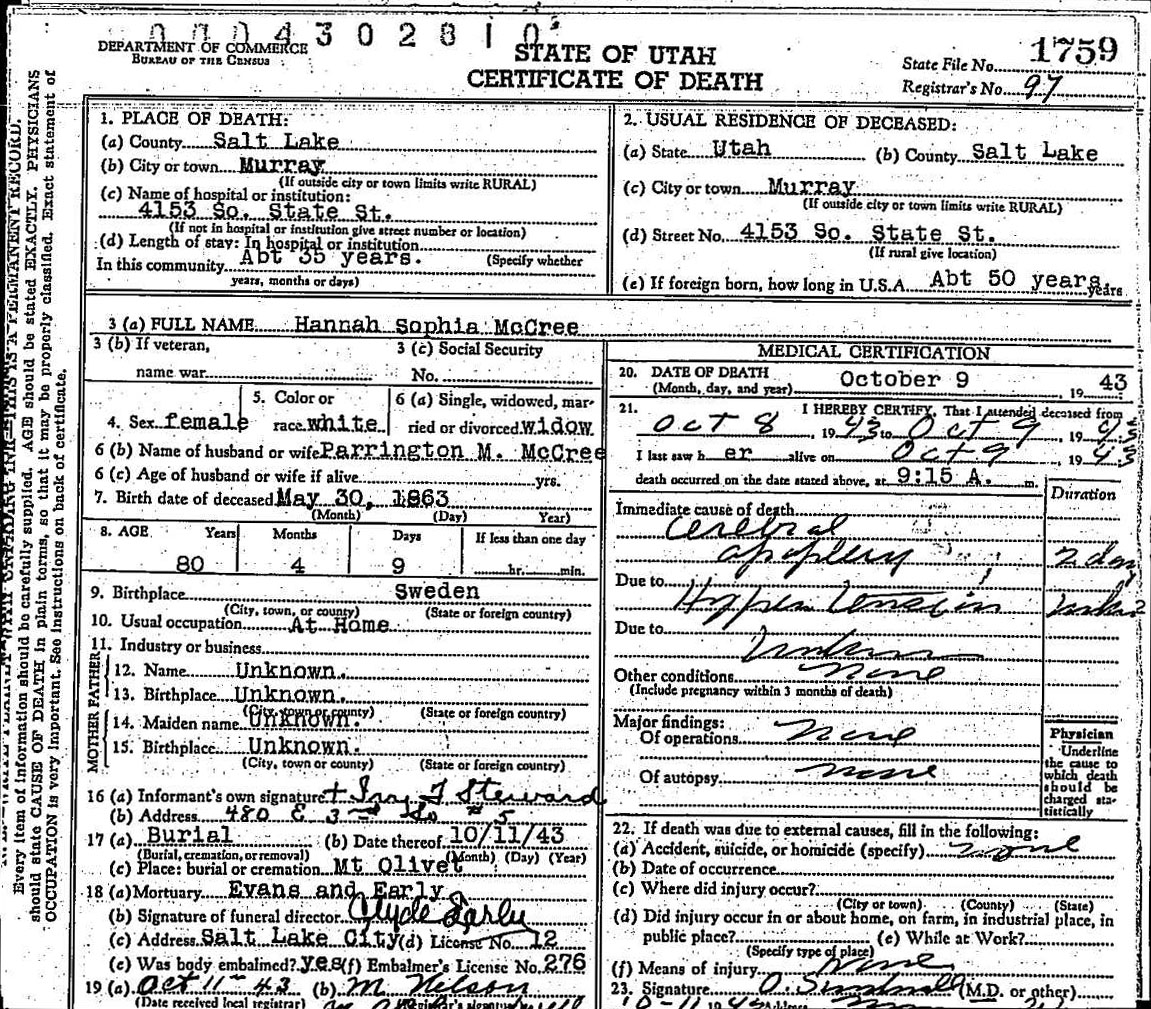 0 0 0 4 3 0 2 8 1 0
DEPARTMENT OF COMMERCE
BUREAU OF THE CENSUS
STATE OF UTAH
CERTIFICATE OF DEATH
State File No. 1759
Registrar's No. 97
1. PLACE OF DEATH:
(a) County Salt Lake
(b) City or town Murray
(If outside city or town limits write RURAL)
(c) Name of hospital or institution:
4153 So. State St.
(If not in hospital or institution give street number or location)
(d) Length of stay: In hospital or institution
In this community Abt 35 years. (Specify whether
years, months or days)
2. USUAL RESIDENCE OF DECEASED:
(a) State Utah (b) County Salt Lake
(c) City or town Murray
(If outside city or town limits write RURAL)
(d) Street No. 4153 So. State St.
(If rural give location)
(e) If foreign born, how long in U.S.A. Abt 50 years. years
3 (a) FULL NAME Hannah Sophia McCree
3 (b) If veteran, 3 (c) Social Security
name war No.
4. Sex female 5. Color or race white 6 (a) Single, widowed, married or divorced widow
6 (b) Name of husband or wife Parrington M. McCree
6 (c) Age of husband or wife if alive yrs.
7. Birth date of deceased May 30, 1863
(Month) (Day) Year)
8. AGE Years Months Days If less than one day
80 4 9 hr. min.
9. Birthplace Sweden
(City, town, or county) (State or foreign country)
10. Usual occupation At Home
11. Industry or business
FATHER
12. Name Unknown.
13. Birthplace Unknown.
(City, town or county) (State or foreign country)
MOTHER
14. Maiden name Unknown.
15. Birthplace Unknown.
(City, town or county) (State or foreign country)
16 (a) Informant's own signature Steward
(b) Address 480 E 3rd So # 5
17 (a) Burial (b) Date thereof 10/11/43
(Burial, cremation, or removal) (Month) (Day) (Year)
(c) Place: burial or cremation Mt Olivet
18 (a) Mortuary Evans and Early
(b) Signature of funeral director Clyde Early
(c) Address Salt Lake City (d) License No. 12
(e) Was body embalmed? yes (f) Embalmer's License No. 276
19 (a) Oct 11 43 (b) M Nelson
(Date received local registrar)
MEDICAL CERTIFICATION
20. DATE OF DEATH
(Month, day, and year) October 9 19 43
21. I HEREBY CERTIFY, That I attended deceased from
Oct 8 19 43 to Oct 9 19 43
I last saw h er alive on Oct 9 19 43
death occurred on the date stated above, at 9:15 A. m.
Duration
Immediate cause of death
Cerebral
apoplexy 2 day
Due to
Hypertension
Due to
Unknown
Other conditions none
(Include pregnancy within 3 months of death)
Major findings:
Of operations none
Of autopsy none
Physician
Underline
the cause to
which death
should be
charged sta-
tistically
22. If death was due to external causes, fill in the following:
(a) Accident, suicide, or homicide (specify) none
(b) Date of occurrence
(c) Where did injury occur?
(City or town) (County) (State)
(d) Did injury occur in or about home, on farm, in industrial place, in
public place? (e) While at Work?
(Specify type of place)
(f) Means of injury none
23. Signature (M.D. or other)
THIS IS A PERMANENT RECORD.
Every item of information should be carefully supplied. AGE should be stated EXACTLY. PHYSICIANS
should state CAUSE OF DEATH in plain terms, so that it may be properly classified. Exact statement of
OCCUPATION is very important. See instructions on back of certificate.